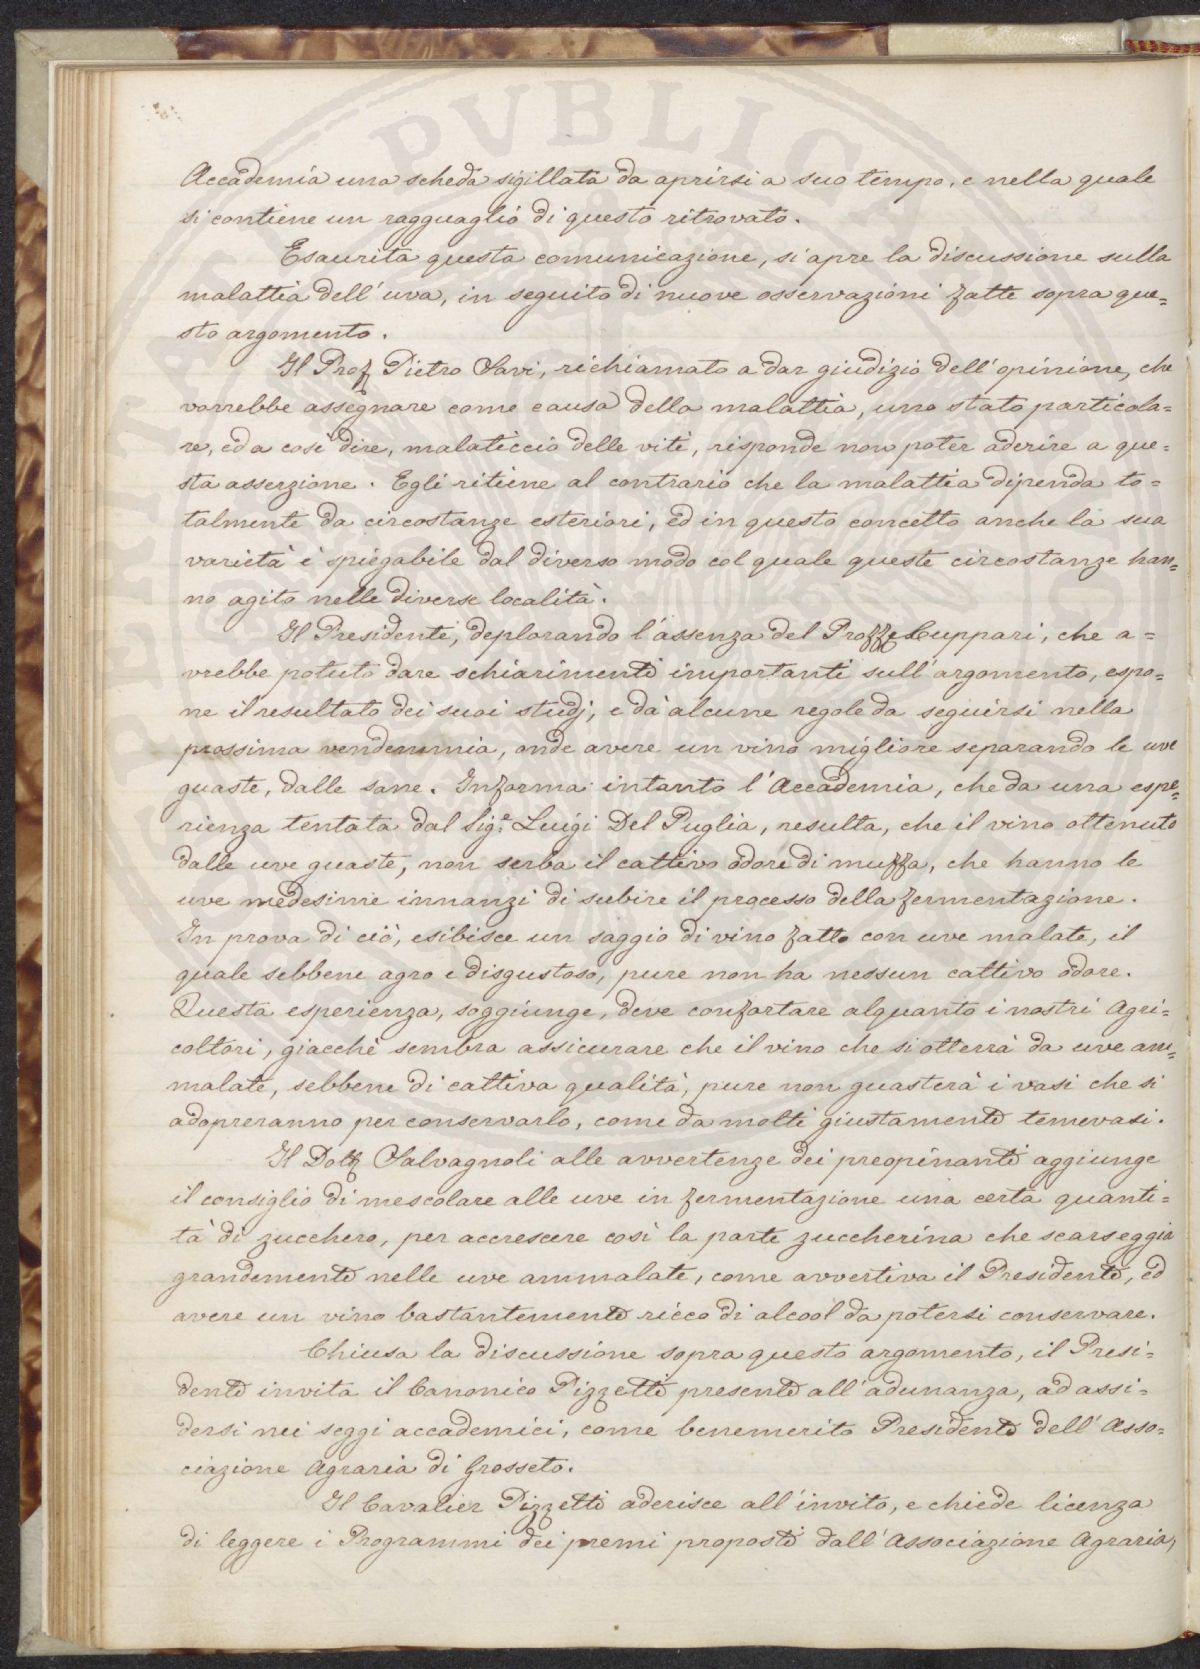 Accademia una scheda sigillata da aprirsi a suo tempo, e nella quale
si contiene un ragguaglio di questo ritrovato.
Esaurita questa comunicazione, si apre la discussione sulla
malattia dell'uva, in seguito di nuove osservazioni fatte sopra que=
sto argomento.
Il Prof Pietro Savi, richiamato a dar giudizio dell'opinione, che
vorrebbe assegnare come causa della malattia, uno stato particola=
re, ed a così dire, malaticcio delle viti, risponde non poter aderire a que=
sta asserzione. Egli ritiene al contrario che la malattia dipenda to=
talmente da circostanze esteriori, ed in questo concetto anche la sua
varietà è spiegabile dal diverso modo col quale queste circostanze han=
no agito nelle diverse località.
Il Presidente, deplorando l'assenza del Proffe Cuppari, che a=
vrebbe potuto dare schiarimenti importanti sull'argomento, espo=
ne il resultato dei suoi studj, e dà alcune regole da seguirsi nella
prossima vendemmia, onde avere un vino migliore separando le uve
guaste, dalle sane. Informa intanto l'Accademia, che da una espe=
rienza tentata dal Sig.e Luigi Del Puglia, resulta, che il vino ottenuto
dalle uve guaste, non serba il cattivo odore di muffa, che hanno le
uve medesime innanzi di subire il processo della fermentazione.
In prova di ciò, esibisce un saggio di vino fatto con uve malate, il
quale sebbene agro e disgustoso, pure non ha nessun cattivo odore.
Questa esperienza, soggiunge, deve confortare alquanto i nostri Agri=
coltori, giacchè sembra assicurare che il vino che si otterrà da uve am=
malate, sebbene di cattiva qualità, pure non guasterà i vasi che si
adopreranno per conservarlo, come da molti giustamente temevasi.
Il Dott Salvagnoli alle avvertenze dei preopinanti aggiunge
il consiglio di mescolare alle uve in fermentazione una certa quanti=
tà di zucchero, per accrescere così la parte zuccherina che scarseggia
grandemente nelle uve ammalate, come avvertiva il Presidente, ed
avere un vino bastantemente ricco di alcool da potersi conservare.
Chiusa la discussione sopra questo argomento, il Presi=
dente invita il Canonico Pizzetti presente all'adunanza, ad assi=
dersi nei seggi accademici, come benemerito Presidente dell'Asso=
ciazione Agraria di Grosseto.
Il Cavalier Pizzetti aderisce all'invito, e chiede licenza
di leggere i Programmi dei premi proposti dall'Associazione Agraria,